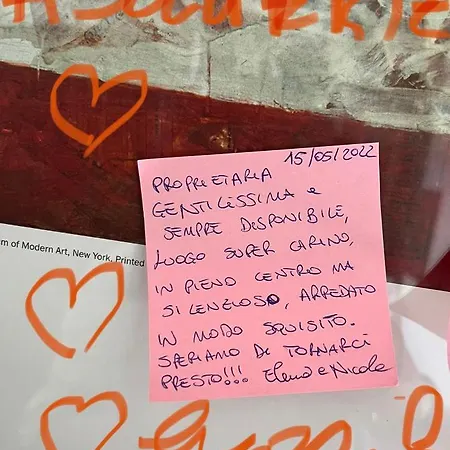 15/05/2022
PROPRIETARIA
GENTILISSIMA e
SEMPRE DISPONIBILE,
LUOGO SUPER CARINO,
m of Modern Art, New York, Printed
IN PIENO CENTRO MA
SILENZIOSO, ARREDATO
IN MODO SQUISITO.
SPERIAMO DI TORNARCI
PRESTO!!! Elena e Nicola